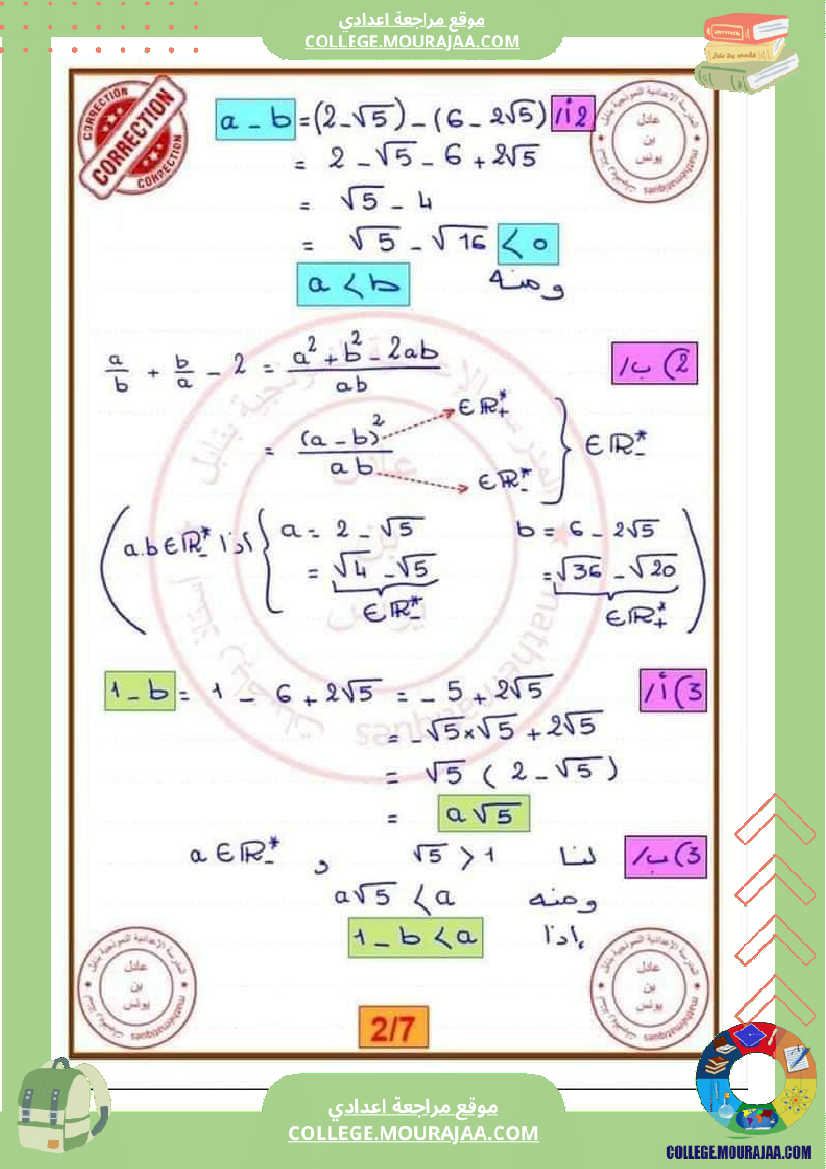 موقع مراجعة اعدادي
COLLEGE.MOURAJAA.COM
CORRECTION
CORRECTION
CORRECTION
عادل
بن
يونس
2أ/ a - b = (2-√5) - (6 - 2√5)
= 2 - √5 - 6 + 2√5
= √5 - 4
= √5 - √16 < 0
ومنه a < b
2) ب/ a/b + b/a - 2 = (a² + b² - 2ab)/(ab)
= (a - b)²/(ab) ∈ℝ₊* ∈ℝ₋* } ∈ℝ₋*
( a.b ∈ℝ₋* اذا { a = 2 - √5 b = 6 - 2√5
= √4 - √5 = √36 - √20
∈ℝ₋* ∈ℝ₊* )
3) أ/ 1 - b = 1 - 6 + 2√5 = - 5 + 2√5
= -√5×√5 + 2√5
= √5 ( 2 - √5 )
= a√5
3) ب/ لنا √5 > 1 و a ∈ℝ₋*
ومنه a√5 < a
إذا 1 - b < a
عادل
بن
يونس
2/7
عادل
بن
يونس
موقع مراجعة اعدادي
COLLEGE.MOURAJAA.COM
COLLEGE.MOURAJAA.COM